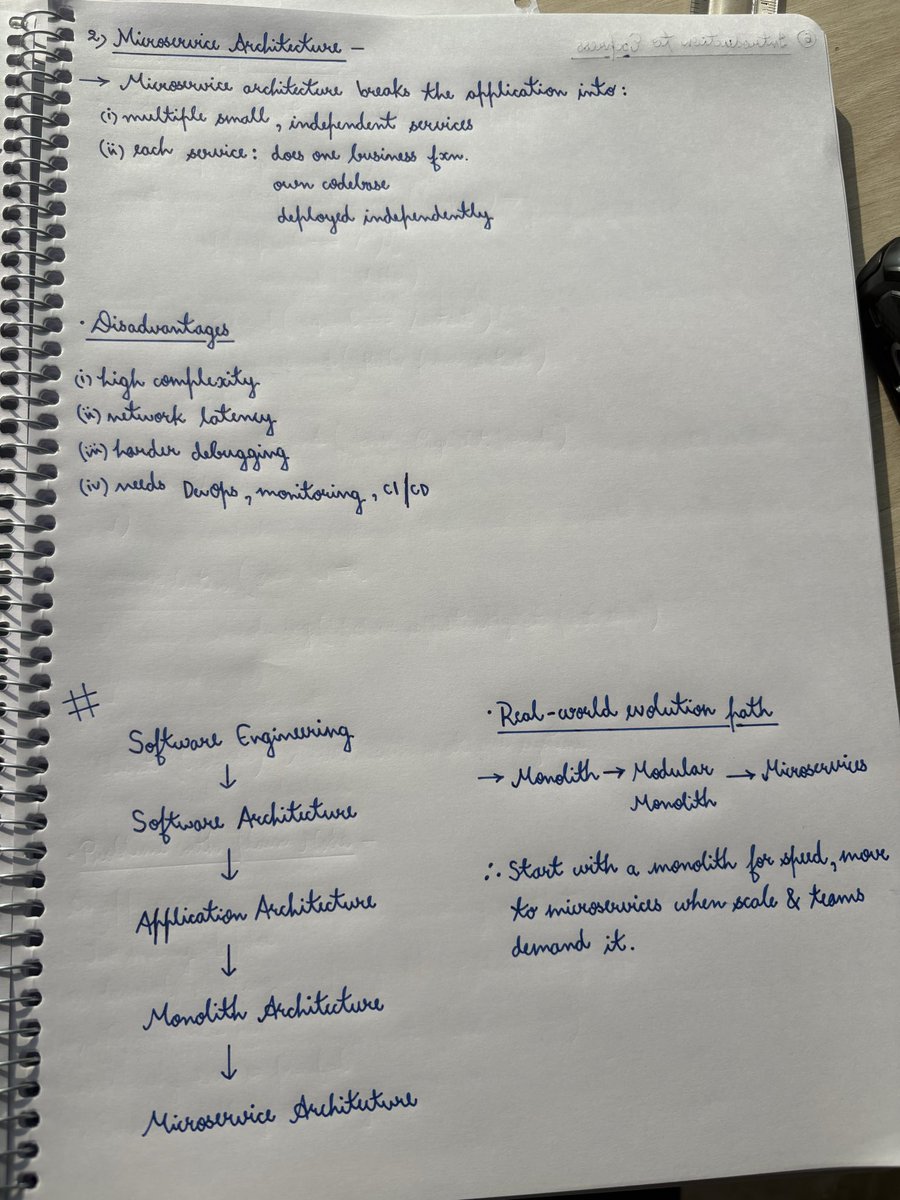 2) Microservice Architecture –
→ Microservice architecture breaks the application into:
(i) multiple small, independent services
(ii) each service: does one business fxn.
own codebase
deployed independently
· Disadvantages
(i) high complexity
(ii) network latency
(iii) harder debugging
(iv) needs DevOps, monitoring, CI/CD
#
Software Engineering
↓
Software Architecture
↓
Application Architecture
↓
Monolith Architecture
↓
Microservice Archituture
· Real-world evolution path
→ Monolith → Modular → Microservices
Monolith
∴ Start with a monolith for speed, move
to microservices when scale & teams
demand it.